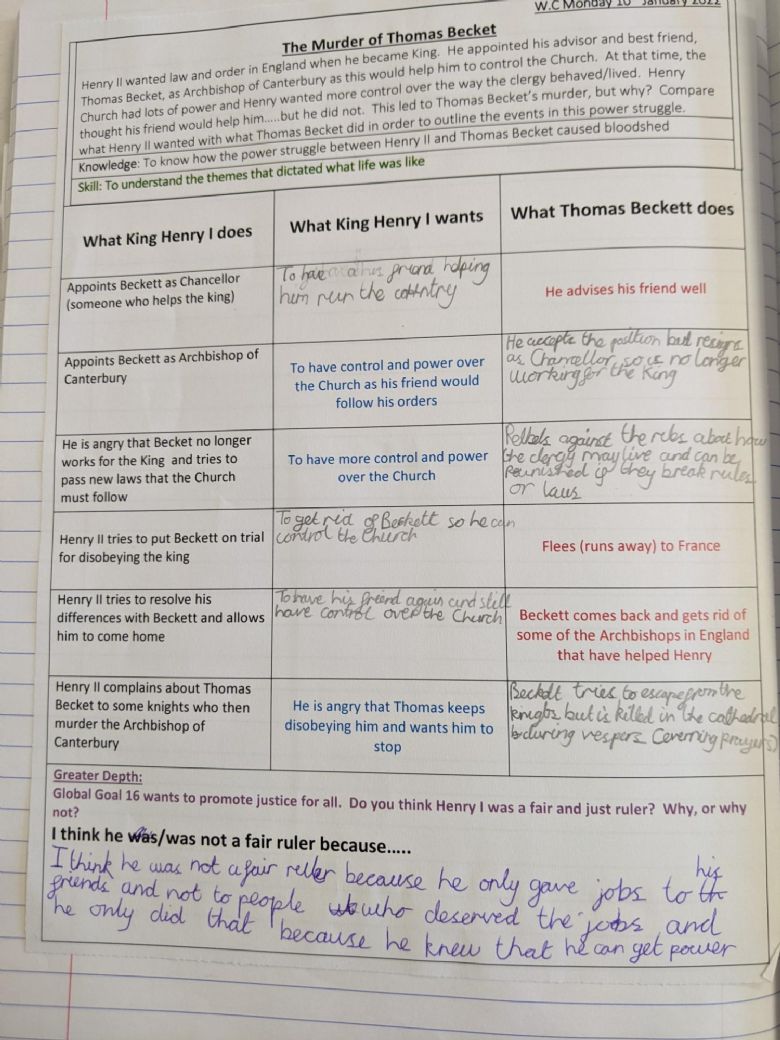 W.C Monday 10 January 2022
The Murder of Thomas Becket
Henry II wanted law and order in England when he became King. He appointed his advisor and best friend,
Thomas Becket, as Archbishop of Canterbury as this would help him to control the Church. At that time, the
Church had lots of power and Henry wanted more control over the way the clergy behaved/lived. Henry
thought his friend would help him.....but he did not. This led to Thomas Becket's murder, but why? Compare
what Henry II wanted with what Thomas Becket did in order to outline the events in this power struggle.
Knowledge: To know how the power struggle between Henry II and Thomas Becket caused bloodshed
Skill: To understand the themes that dictated what life was like
What King Henry I does
What King Henry I wants
What Thomas Beckett does
Appoints Beckett as Chancellor
(someone who helps the king)
To have his friend helping
him run the country
He advises his friend well
Appoints Beckett as Archbishop of
Canterbury
To have control and power over
the Church as his friend would
follow his orders
He accepts the position but resigns
as Chancellor, so is no longer
working for the King
He is angry that Becket no longer
works for the King and tries to
pass new laws that the Church
must follow
To have more control and power
over the Church
Relbels against the rules about how
the clergy may live and can be
punished if they break rules
or laws
Henry II tries to put Beckett on trial
for disobeying the king
To get rid of Beckett so he can
control the Church
Flees (runs away) to France
Henry II tries to resolve his
differences with Beckett and allows
him to come home
To have his friend again and still
have control over the Church
Beckett comes back and gets rid of
some of the Archbishops in England
that have helped Henry
Henry II complains about Thomas
Becket to some knights who then
murder the Archbishop of
Canterbury
He is angry that Thomas keeps
disobeying him and wants him to
stop
Beckett tries to escape from the
knights but is killed in the cathedral
during vespers (evening prayers)
Greater Depth:
Global Goal 16 wants to promote justice for all. Do you think Henry I was a fair and just ruler? Why, or why
not?
I think he was/was not a fair ruler because.....
I think he was not a fair ruler because he only gave jobs to his
friends and not to people who deserved the jobs and
he only did that because he knew that he can get power